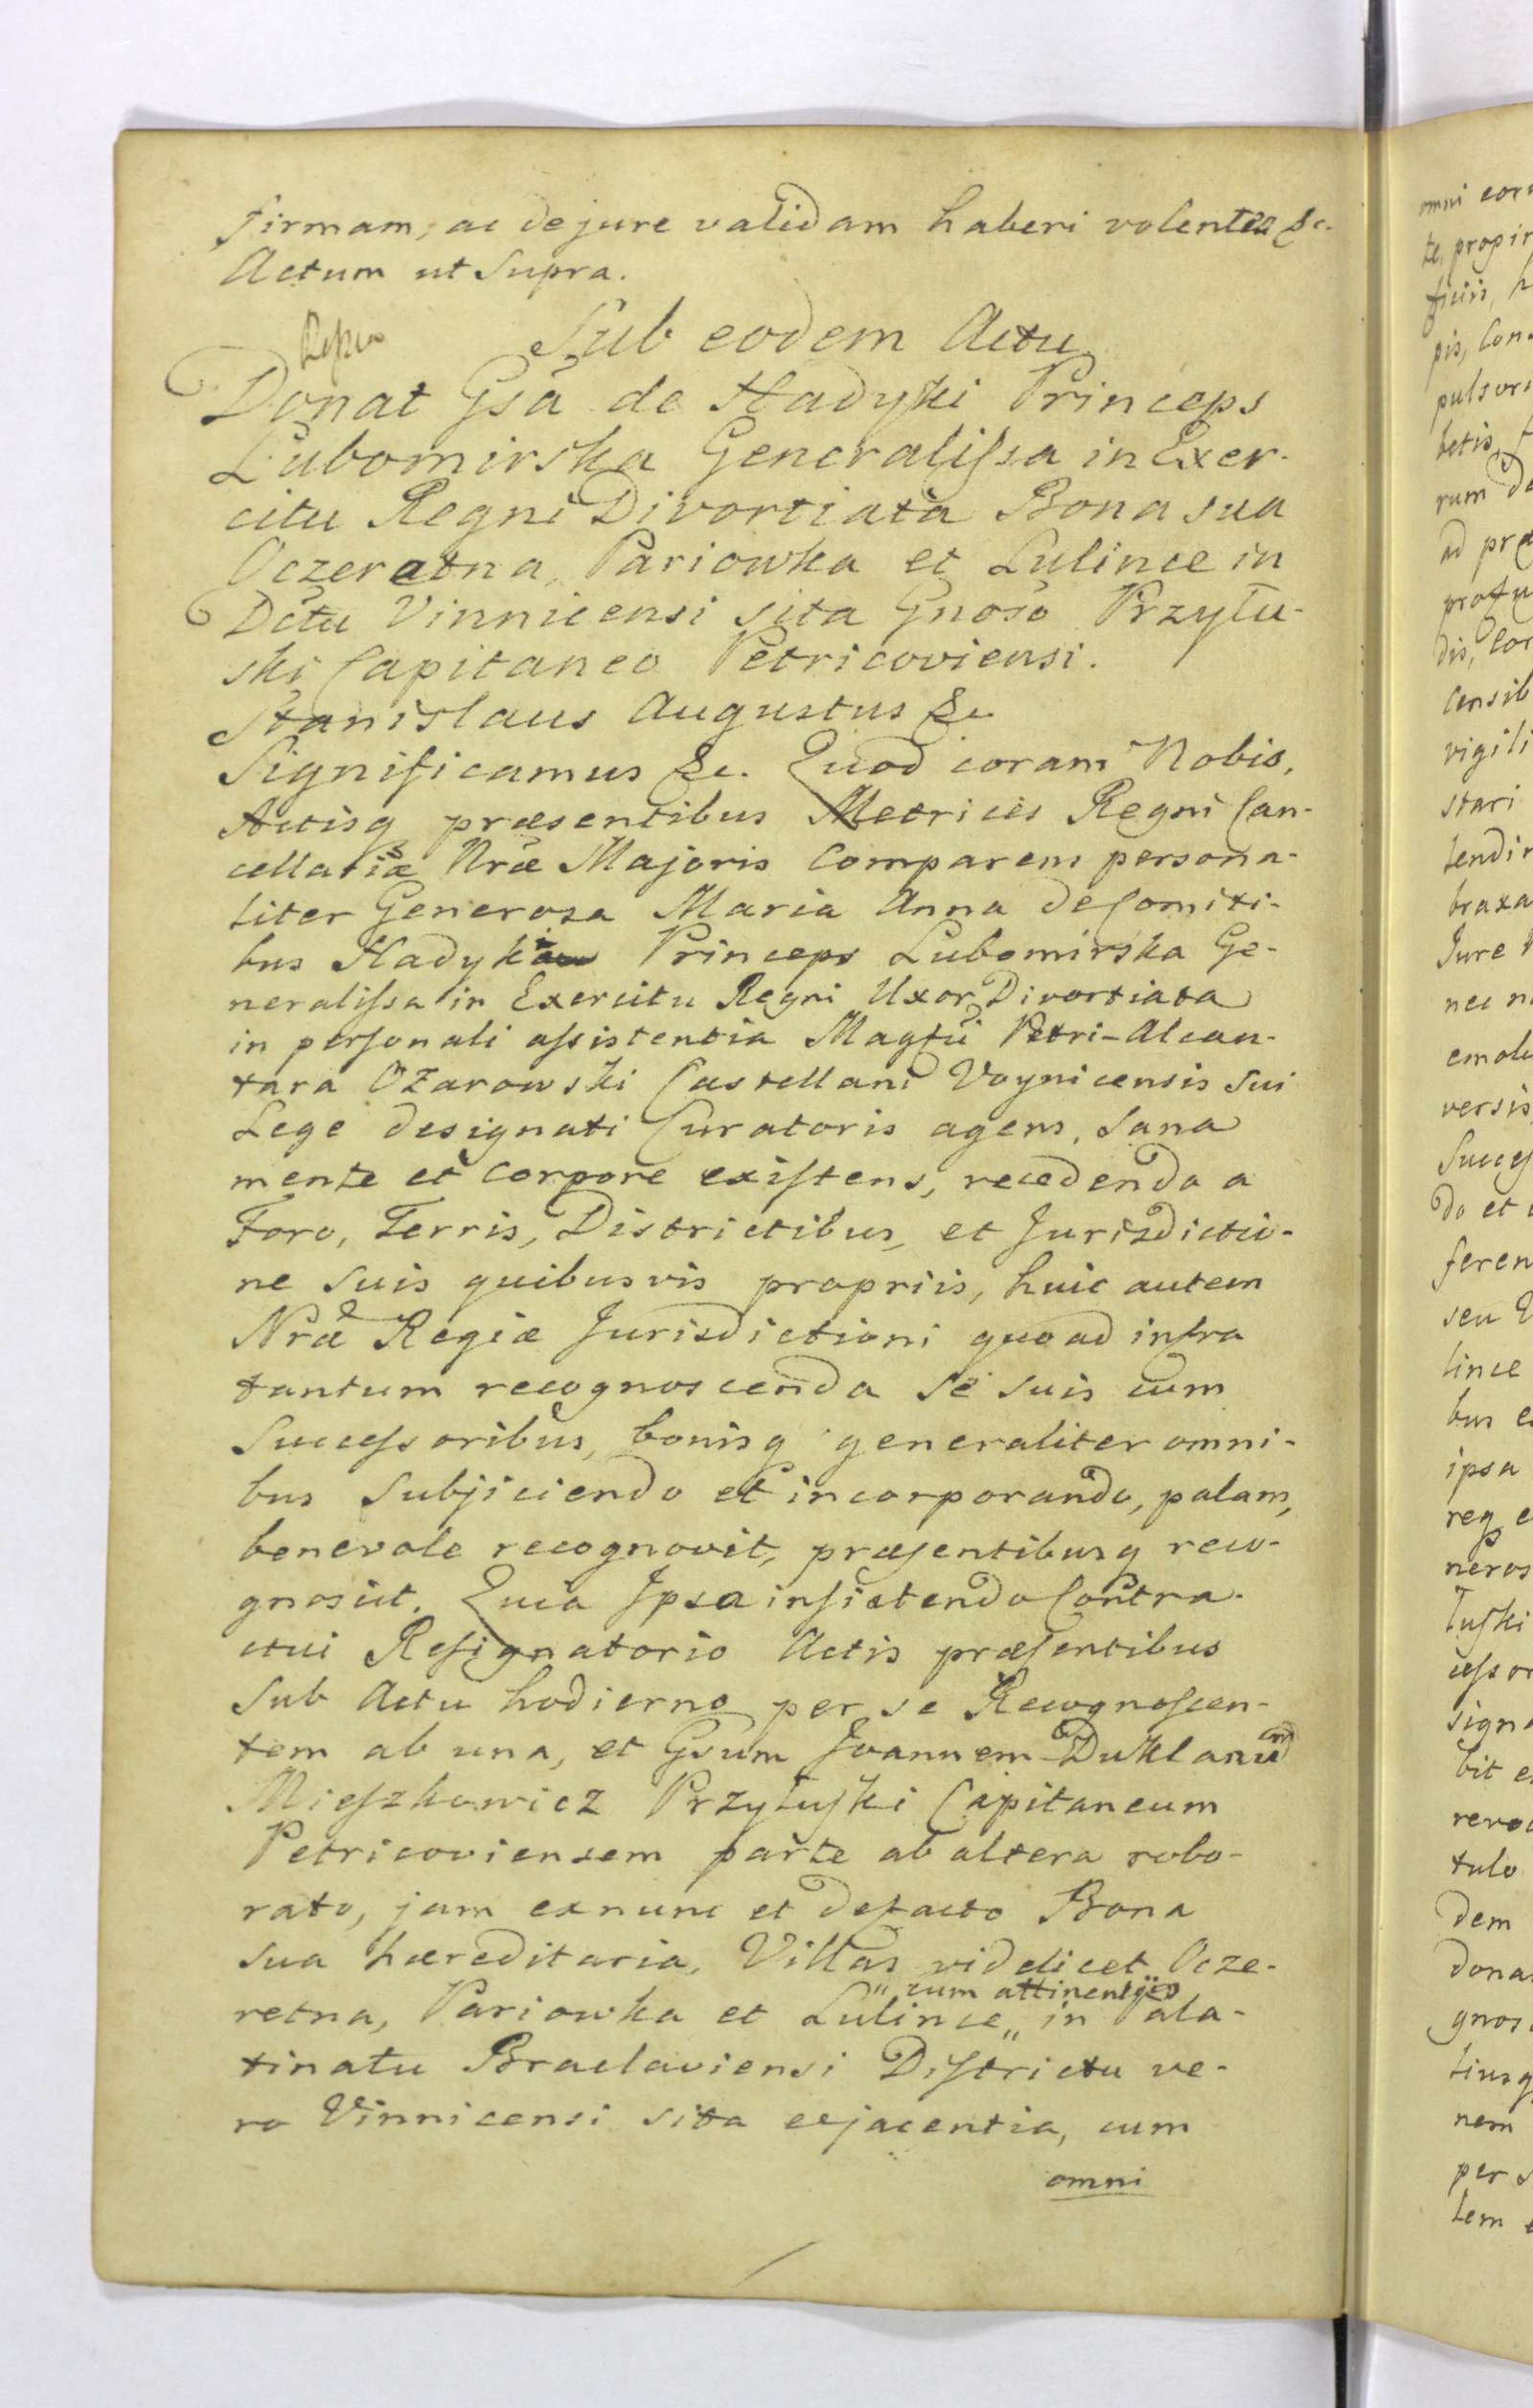 firmam, ac de jure validam haberi volentes &c.
Actum ut Supra.
Sub eodem Actu
Donat Gsa de Hadyki Princeps
Lubomirska Generalissa in Exer-
citu Regni Divortiata Bona sua
Oczeretna, Pariowka et Lulince in
Dctu Vinnicensi sita Gnoso Przyłu-
ski Capitaneo Petricoviensi.
Stanislaus Augustus &c.
Significamus &c. Quod coram Nobis,
Actisq præsentibus Metrices Regni Can-
cellariæ Nræ Majoris Comparens persona-
liter Generosa Maria Anna de Comiti-
bus Hadyki Princeps Lubomirska Ge-
neralissa in Exercitu Regni Uxor Divortiata
in personali assistentia Magfci Petri-Alcan-
tara Ożarowski Castellani Voynicensis sui
Lege designati Curatoris agens, sana
mente et corpore existens, recedendo a
Foro, Terris, Districtibus, et Jurisdictio-
ne suis quibusvis propriis, huic autem
Nræ Regiæ Jurisdictioni quoad infra
tantum recognoscenda se suis cum
Successoribus, bonisq generaliter omni-
bus Subjiciendo et incorporando, palam,
benevole recognovit, præsentibusq reco-
gnoscit. Quia Ipsa insistendo Contra-
ctui Resignatorio Actis præsentibus
Sub Actu hodierno per se Recognoscen-
tem ab una, et Gsum Joannem Duklanum
Mieszkowicz Przyłuski Capitaneum
Petricoviensem parte ab altera robo-
rato, jam ex nunc et defacto Bona
sua hæreditaria, Villas videlicet Ocze-
retna, Pariowka et Lulince „ cum attinentijs „ in Pala-
tinatu Braclaviensi Districtu ve-
ro Vinnicensi sita et jacentia, cum
omni